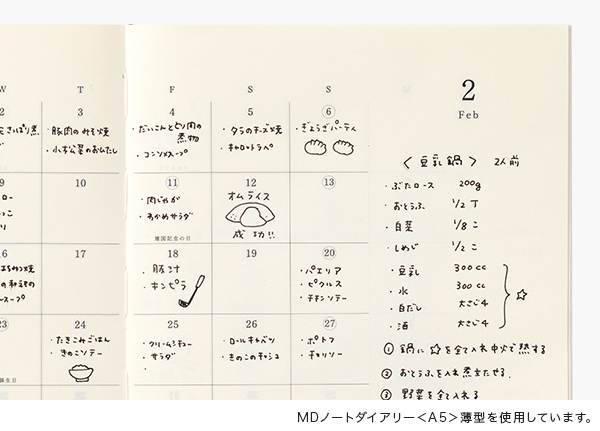 W T F S S
2
Feb
2
さっぱり煮
3
・豚肉のみそ焼
・小松菜のおひたし
4
・だいこんととり肉の
煮物
・コンソメスープ
5
・タラのチーズ焼
・キャロットラペ
6
・ぎょうざパーティ
9
10
11
・肉じゃが
・わかめサラダ
建国記念の日
12
オムライス
成功!!
13
16
スープ
17
18
豚汁
キンピラ
19
20
・パエリア
・ピクルス
・チキンソテー
23
天皇誕生日
24
・たきこみごはん
・きのこソテー
25
・クリームシチュー
・サラダ
26
・ロールキャベツ
・きのこのキッシュ
27
・ポトフ
・チョリソー
〈豆乳鍋〉 2人前
・ぶたロース 200g
・おとうふ 1/2丁
・白菜 1/8コ
・しめじ 1/2コ
・豆乳 300cc
・水 300cc
・白だし 大さじ4
・酒 大さじ4
☆
① 鍋に☆を全て入れ中火で熱する
② おとうふを入れ煮立たせる.
③ 野菜を全て入れる
MDノートダイアリー<A5>薄型を使用しています。